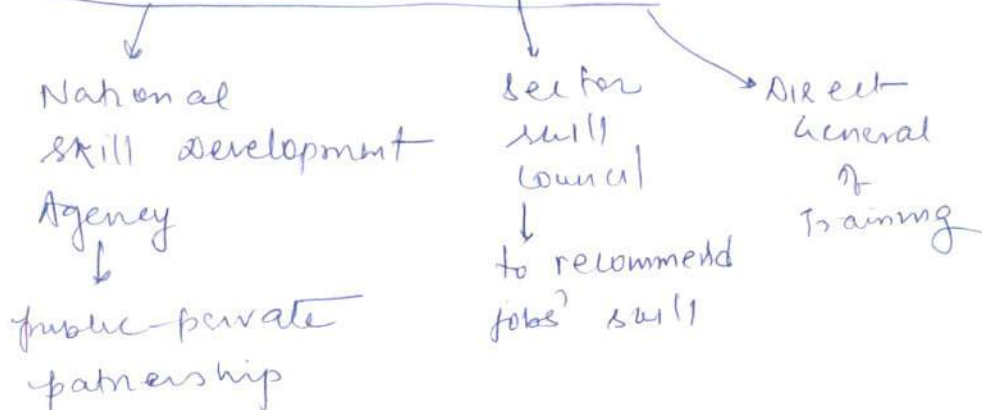 National
Skill Development
Agency
public-private
patnership
Sector
skill
council
to recommend
jobs' skill
Direct
General
of
Training